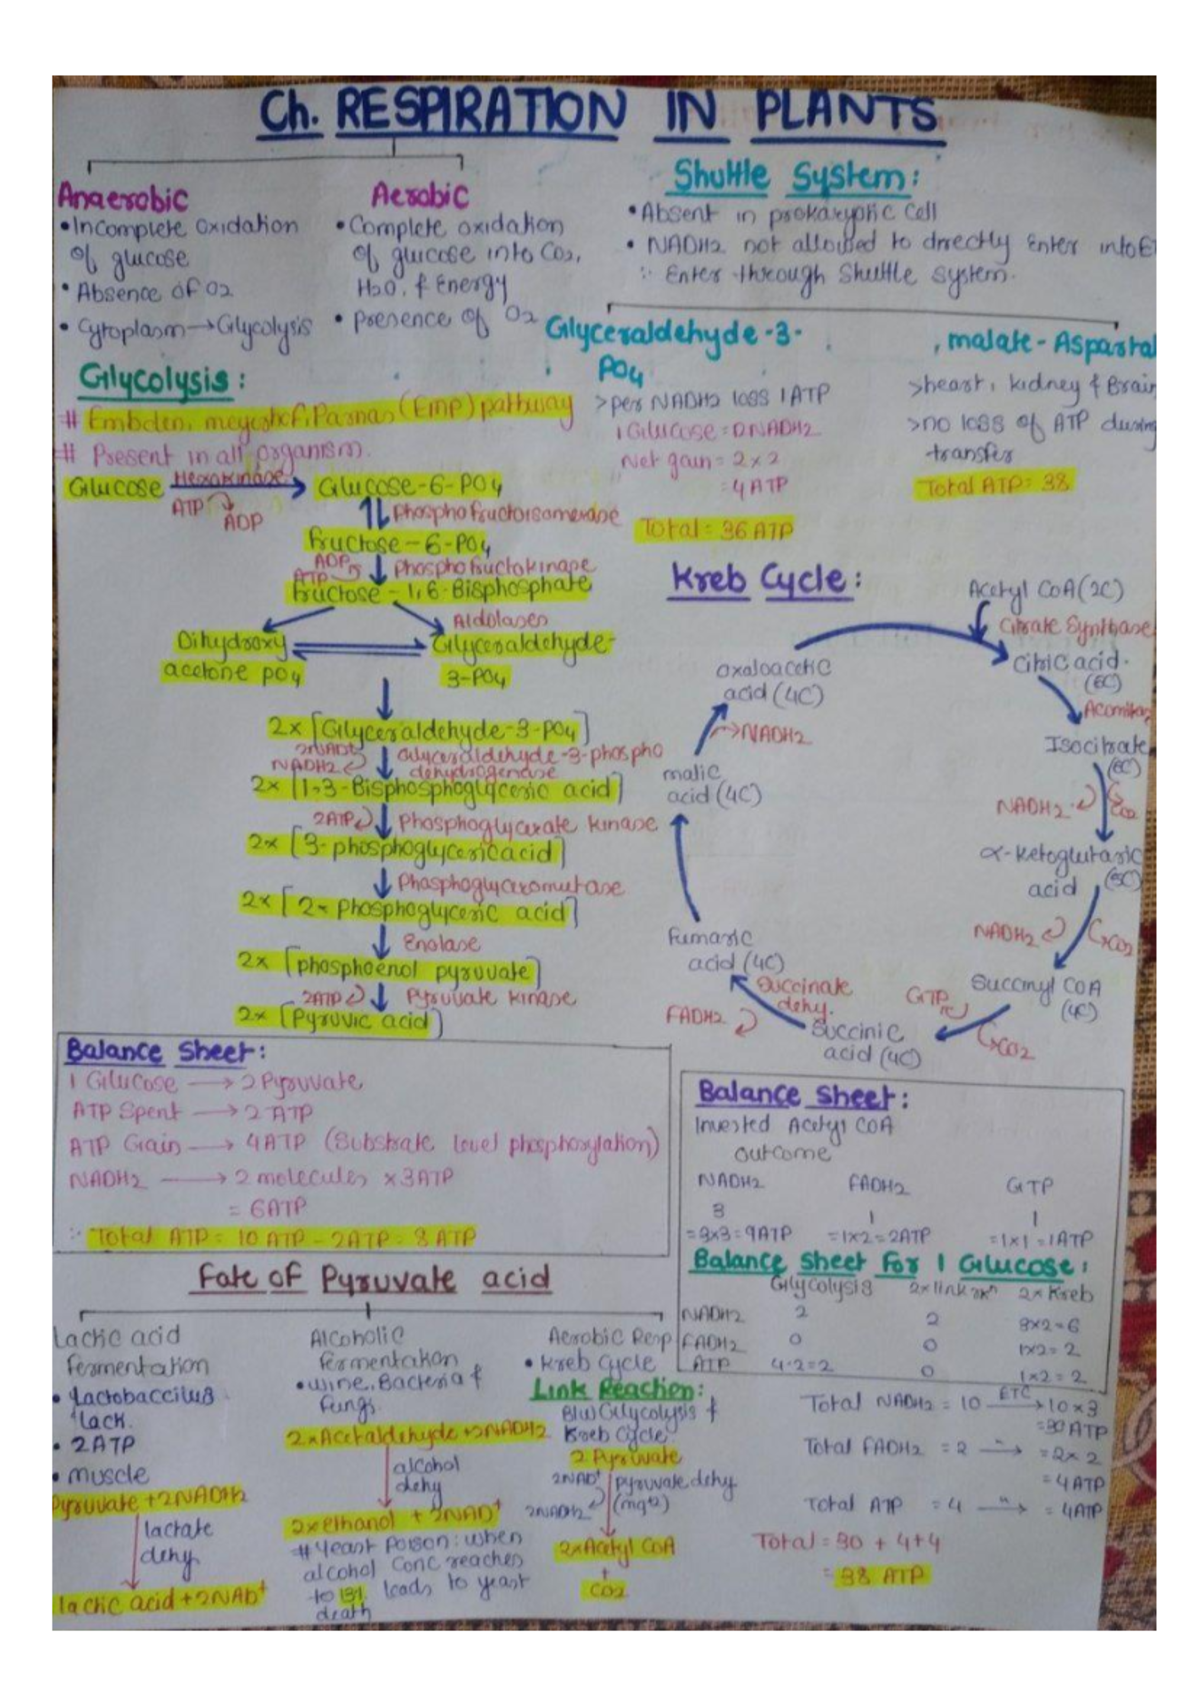 Ch. RESPIRATION IN PLANTS
Anaerobic
• Incomplete oxidation
of glucose
• Absence of O2
• Cytoplasm → Glycolysis
Aerobic
• Complete oxidation
of glucose into CO2,
H2O, & Energy
• presence of O2
Shuttle System:
• Absent in prokaryotic cell
• NADH2 not allowed to directly enter into E
∵ Enter through Shuttle system.
Glyceraldehyde-3-
PO4
> per NADH2 loss 1 ATP
1 Glucose = 2NADH2
Net gain = 2 x 2
= 4 ATP
Total = 36 ATP
malate-Aspartat
> heart, kidney & Brain
> no loss of ATP during
transfer
Total ATP = 38
Glycolysis:
# Embden, meyerhof, Parnas (EMP) pathway
# Present in all organism.
Glucose Hexokinase → Glucose-6-PO4
ATP ADP
Phosphofructoisomerase
fructose-6-PO4
ADP
ATP
Phosphofructokinase
fructose-1,6-Bisphosphate
Aldolases
Dihydroxy
acetone PO4
Glyceraldehyde-
3-PO4
2x [Glyceraldehyde-3-PO4]
2NAD+
NADH2
Glyceraldehyde-3-phospho
dehydrogenase
2x [1,3-Bisphosphoglyceric acid]
2ATP Phosphoglycerate kinase
2x [3-phosphoglyceric acid]
Phosphoglyceromutase
2x [2-phosphoglyceric acid]
Enolase
2x [phosphoenol pyruvate]
2ATP Pyruvate kinase
2x [Pyruvic acid]
Kreb Cycle:
Acetyl CoA (2C)
Citrate Synthase
Citric acid
(6C)
Aconitas
Isocitrate
(6C)
NADH2 CO2
α-Ketoglutaric
acid (5C)
NADH2 CO2
Succinyl COA
(4C)
GTP
CO2
Succinic
acid (4C)
Succinate
dehy.
FADH2
Fumaric
acid (4C)
malic
acid (4C)
NADH2
Oxaloacetic
acid (4C)
Balance Sheet:
1 Glucose → 2 Pyruvate
ATP Spent → 2 ATP
ATP Gain → 4ATP (Substrate level phosphorylation)
NADH2 → 2 molecules x 3ATP
= 6ATP
∴ Total ATP = 10 ATP - 2ATP = 8 ATP
Balance Sheet:
Invested Acetyl COA
outcome
NADH2 FADH2 GTP
3 1 1
= 3x3 = 9ATP = 1x2 = 2ATP = 1x1 = 1ATP
Balance Sheet For 1 Glucose:
Glycolysis 2x link rxn 2x Kreb
NADH2 2 2 3x2=6
FADH2 0 0 1x2=2
ATP 4-2=2 0 1x2=2
Total NADH2 = 10 ETC → 10 x 3
= 30 ATP
Total FADH2 = 2 → = 2x2
= 4ATP
Total ATP = 4 → = 4ATP
Total = 30 + 4+4
= 38 ATP
Fate of Pyruvate acid
Lactic acid
fermentation
• Lactobacillus
Lack.
• 2ATP
• muscle
Pyruvate + 2NADH2
lactate
dehy
lactic acid + 2NAD+
Alcoholic
fermentation
• wine, Bacteria &
fungi
2xAcetaldehyde + 2NADH2
alcohol
dehy
2x ethanol + 2NAD+
# Yeast Poison: when
alcohol conc reaches
to 13% leads to yeast
death
Aerobic Resp
• Kreb cycle
Link Reaction:
B/w Glycolysis &
Kreb Cycle
2 Pyruvate
2NAD+
2NADH2
pyruvate dehy
(mg+2)
2xAcetyl CoA
+
CO2